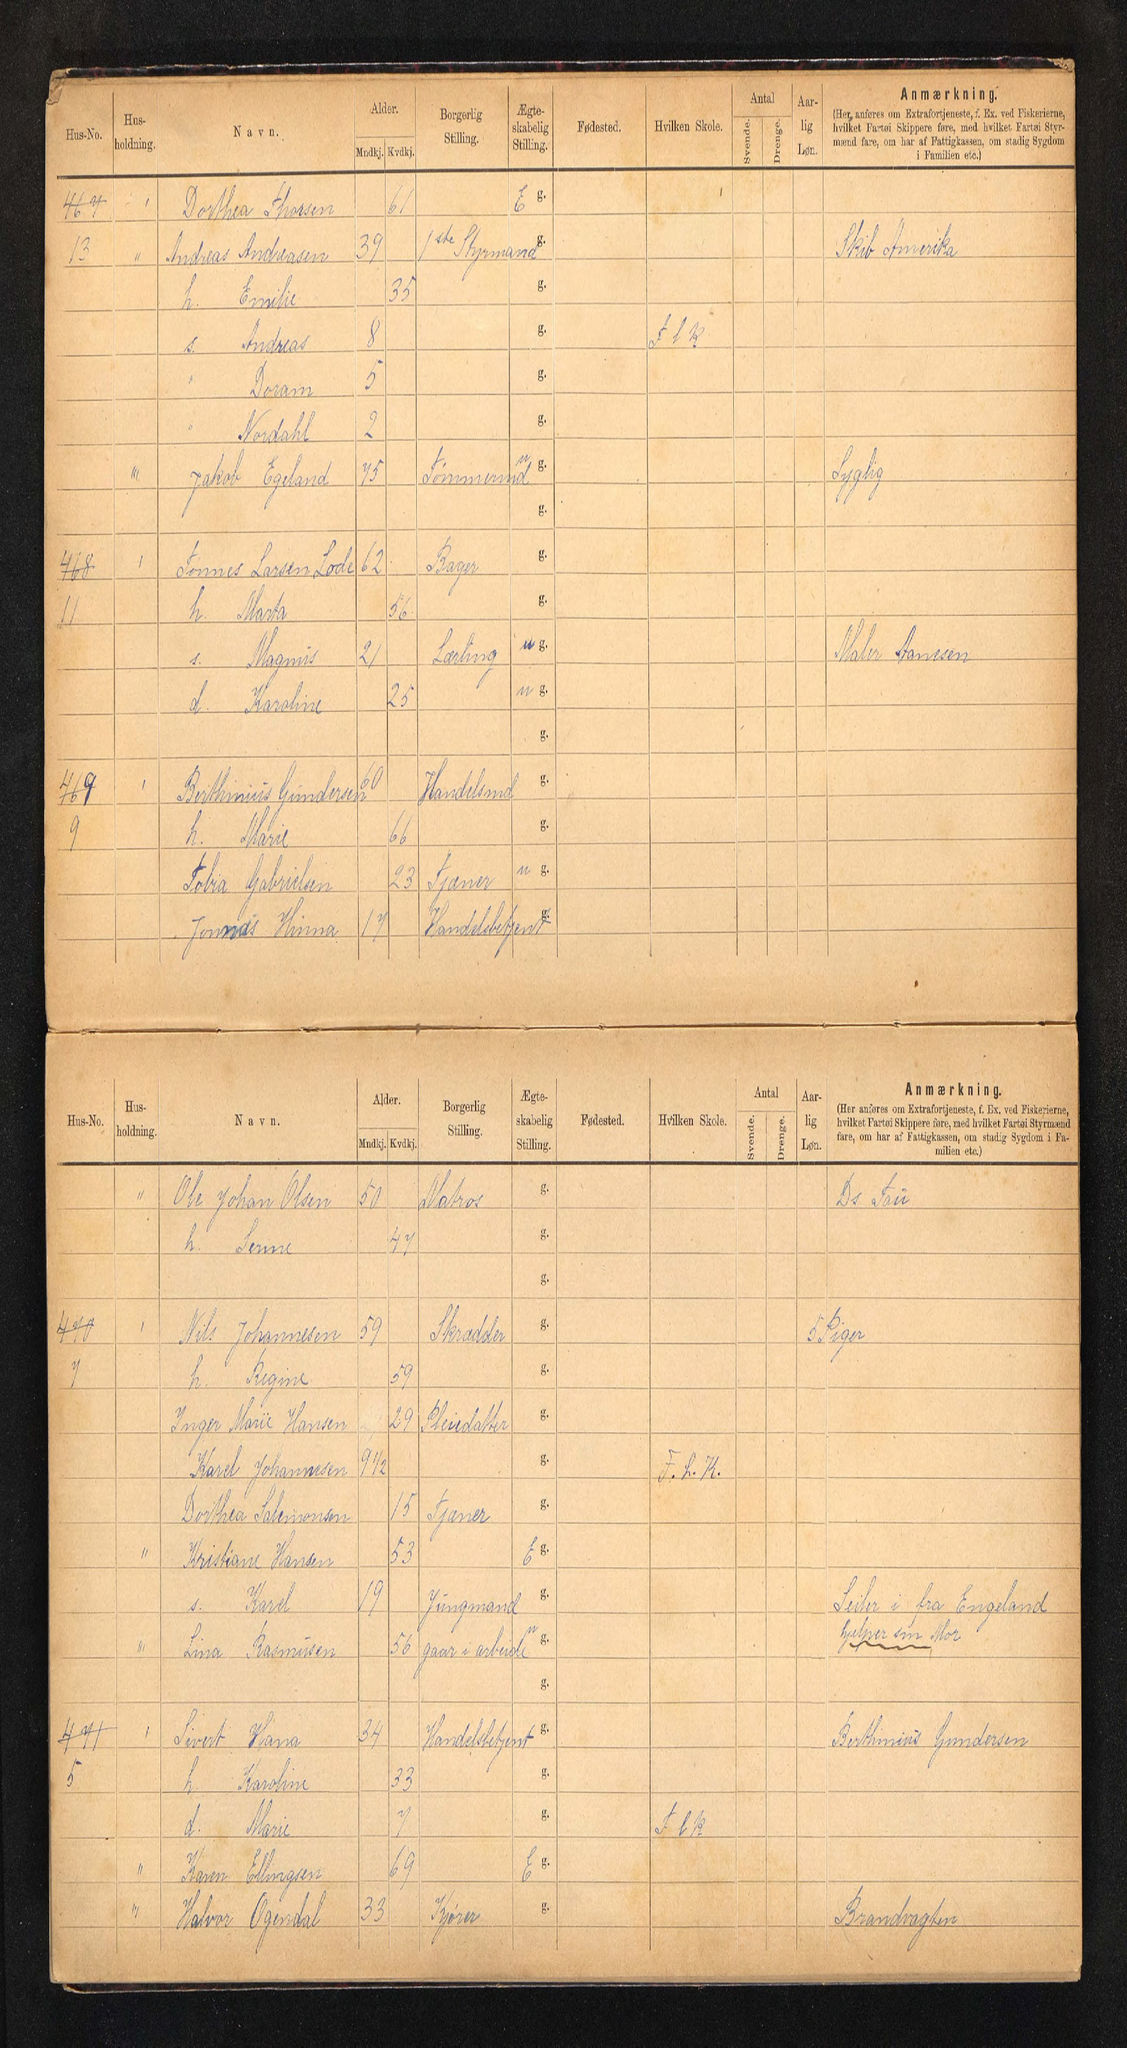 Hus-No. Hus-holdning. Navn. Alder. Mndkj. Kvdkj. Borgerlig Stilling. Ægte-skabelig Stilling. Fødested. Hvilken Skole. Antal Svende. Drenge. Aar-lig Løn. Anmærkning.
(Her, anføres om Extrafortjeneste, f. Ex. ved Fiskerierne,
hvilket Fartøi Skippere føre, med hvilket Fartøi Styr-
mænd fare, om har af Fattigkassen, om stadig Sygdom
i Familien etc.)
467 ' Dorthea Thorsen 61 E g.
13 " Andreas Andreasen 39 1ste Styrmand g. Skib Amerika
h. Emilie 35 g.
s. Andreas 8 g. F l K
" Doram 5 g.
" Nordahl 2 g.
"' Jakob Egeland 75 Tømmermd u g. Syglig
g.
468 ' Tønnes Larsen Lode 62 Bager g.
11 h. Marta 56 g.
s. Magnus 21 Lærling u g. Maler Aanesen
d. Karoline 25 u g.
g.
469 ' Berthinius Gundersen 60 Handelsmd g.
9 h. Marie 66 g.
Tobia Gabrielsen 23 Tjæner u g.
Jonnas Hinna 17 Handelsbetjent g.
Hus-No. Hus-holdning. Navn. Alder. Mndkj. Kvdkj. Borgerlig Stilling. Ægte-skabelig Stilling. Fødested. Hvilken Skole. Antal Svende. Drenge. Aar-lig Løn. Anmærkning.
(Her anføres om Extrafortjeneste, f. Ex. ved Fiskerierne,
hvilket Fartøi Skippere føre, med hvilket Fartøi Styrmænd
fare, om har af Fattigkassen, om stadig Sygdom i Fa-
milien etc.)
" Ole Johan Olsen 50 Matros g. Ds Tau
h. Serine 47 g.
g.
470 ' Nils Johannesen 59 Skrædder g. 5 Piger
7 h. Regine 59 g.
Inger Marie Hansen 29 Pleiedatter g.
Karel Johannesen 9 1/2 g. F. L. K.
Dorthea Salemonsen 15 Tjæner g.
" Kristiane Hansen 53 E g.
s. Karel 19 Jungmand g. Seiler i fra Engeland
"' Lina Rasmusen 56 gaar i arbeide u g. hjelper sin Mor
g.
471 ' Sivert Hana 34 Handelsbetjent g. Berthinius Gundersen
5 h. Karoline 33 g.
d. Marie 7 g. F l K
" Karen Ellingsen 69 E g.
"' Halvor Ogendal 33 Kjører g. Brandvagten